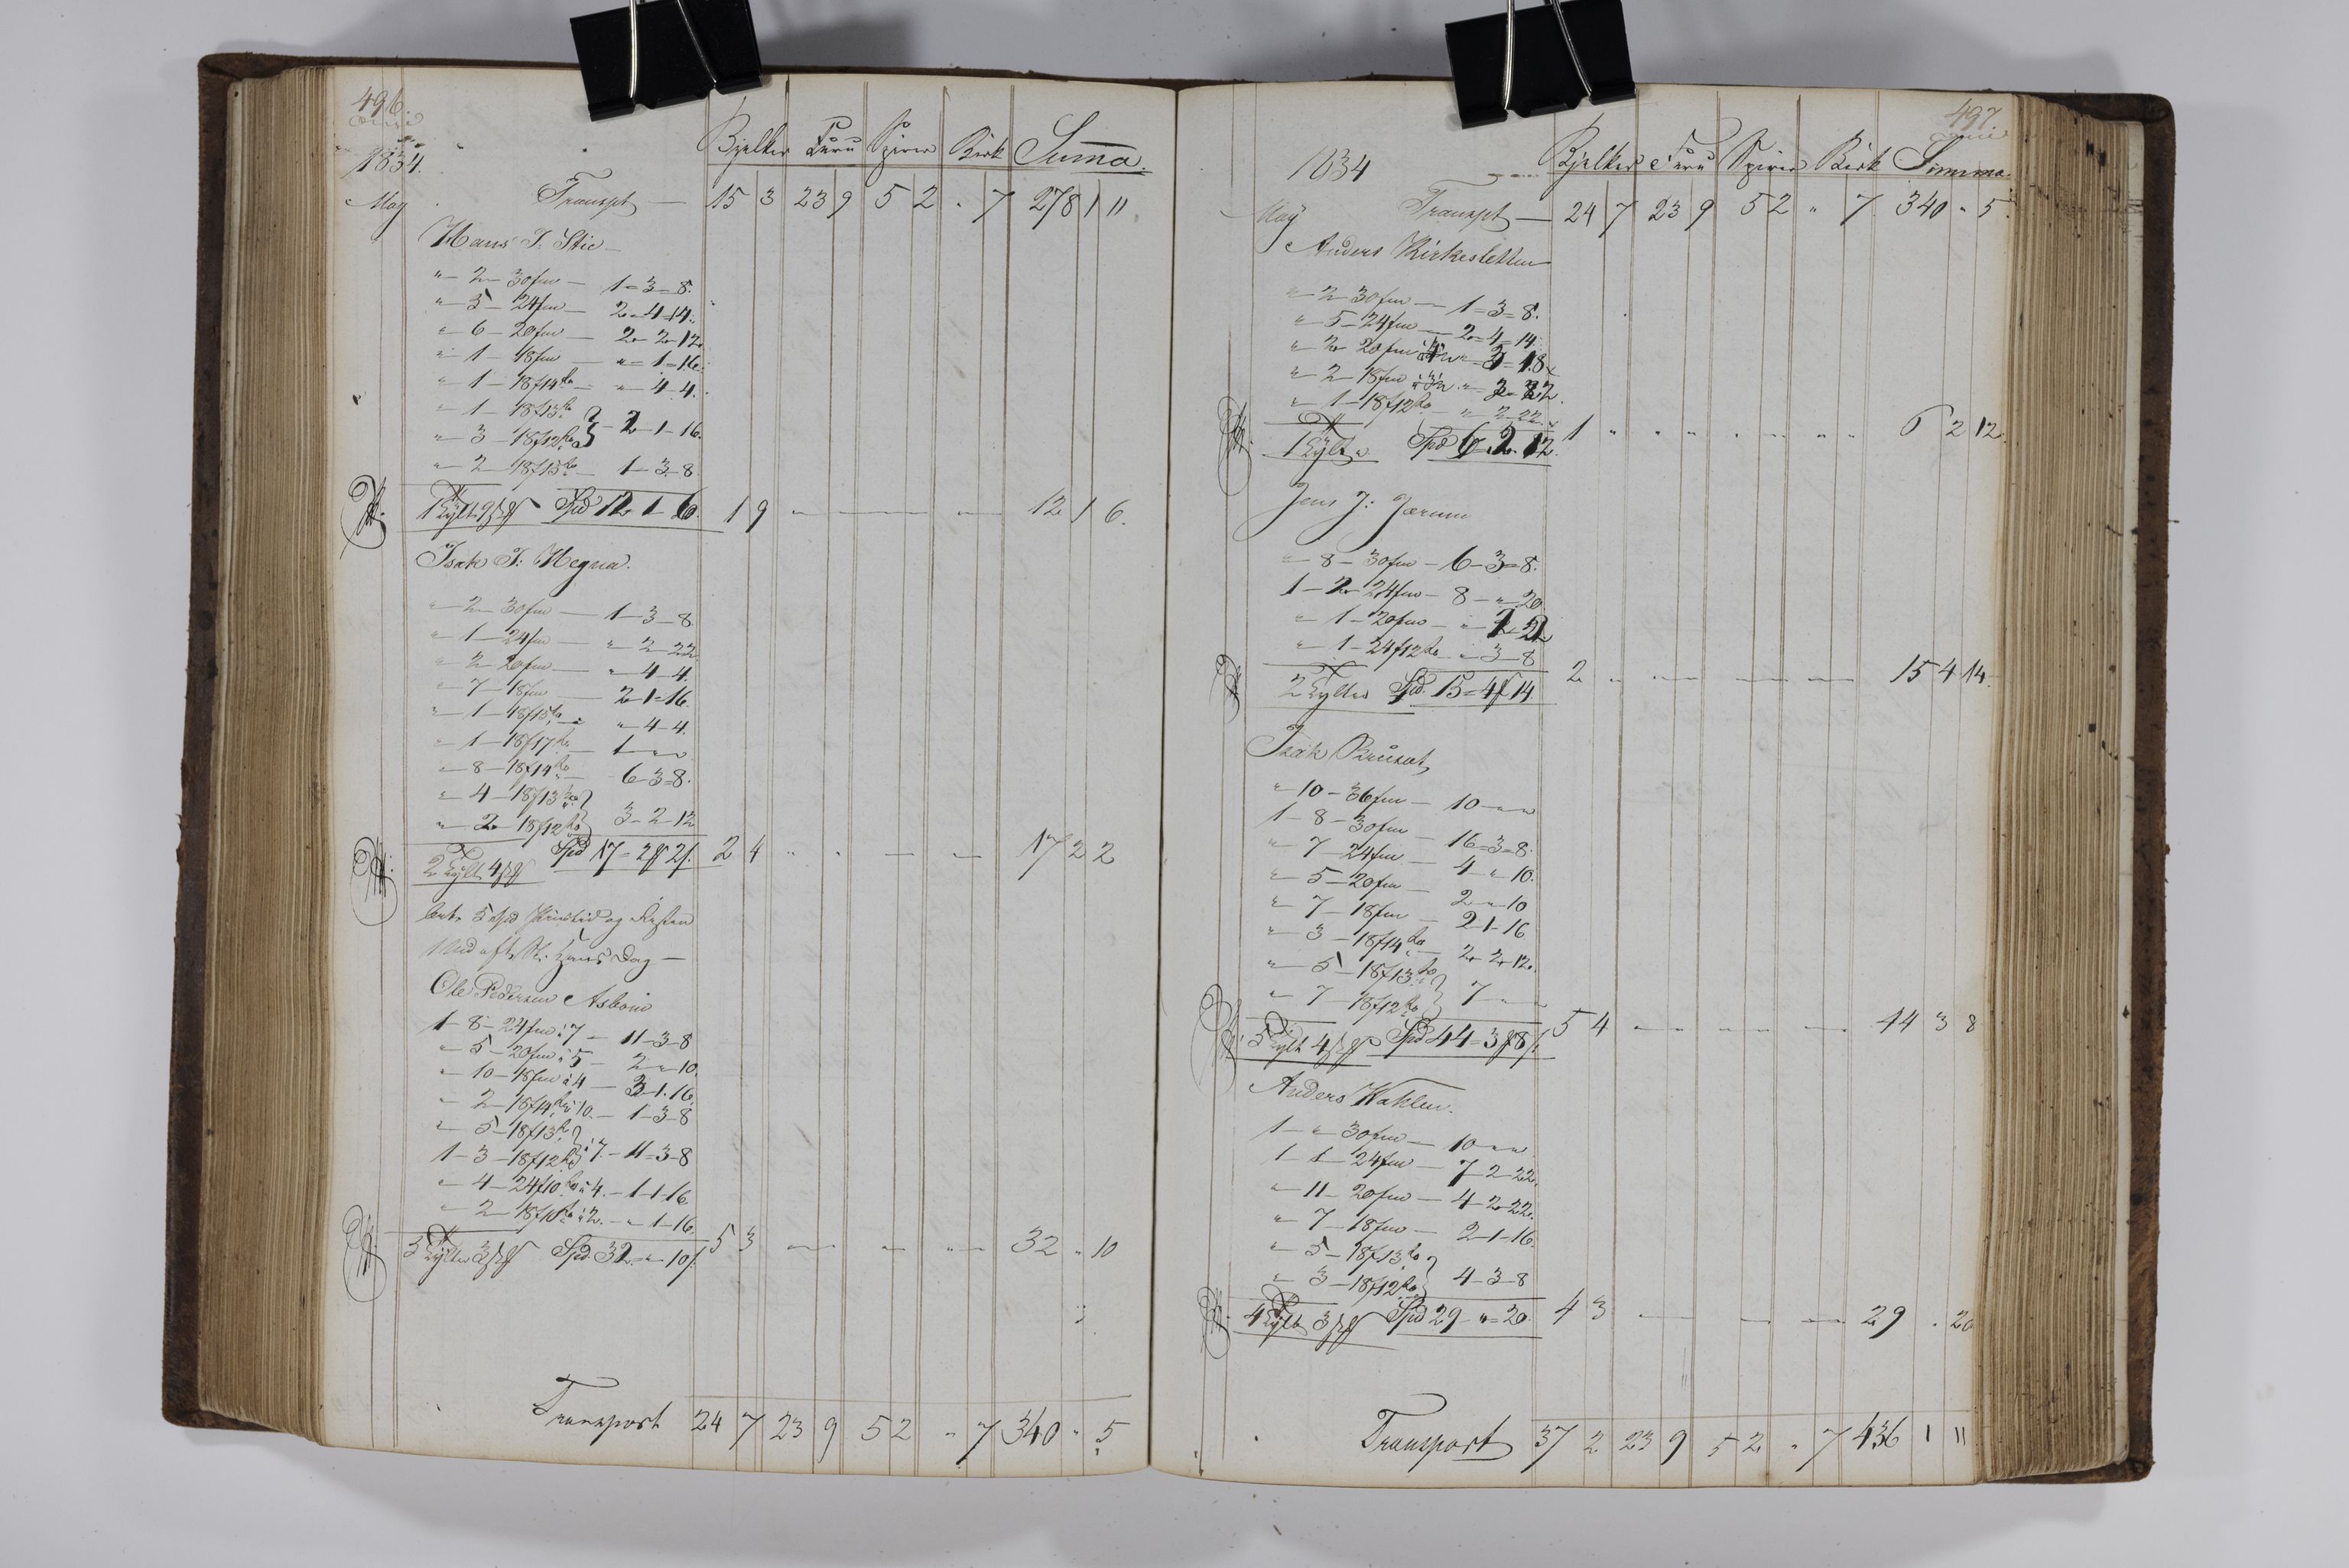 496.
1834.
Bjelker Furu Spirer Birk Summa.
May Transpt — 15 3 23 9 5 2 " 7 278 1 11
Hans J. Stie
" 2 — 30fm — 1 = 3 = 8.
" 5 — 24fm — 2 - 4 - 14.
" 6 — 20fm — 2 - 2 - 12.
" 1 — 18fm — " = 1 = 16.
" 1 — 18f14 — " 4 - 4.
" 1 — 18f13
" 3 — 18f12 } 2 - 1 - 16.
" 2 — 18f15 — 1 - 3 - 8
1 Tylt 9 Spd 12 - 1 - 6. 1 9 — 12 1 6.
Isak J: Hegna.
" 2 — 30fm — 1 - 3 - 8
" 1 — 24fm — " 2 - 22
" 2 — 20fm — " 4 - 4.
" 7 — 18fm — 2 - 1 = 16.
" 1 — 18f15 — " 4 - 4.
" 1 — 18f17 — 1 " "
" 8 — 18f14 — 6 - 3 = 8.
" 4 — 18f13
" 2 — 18f12 } 3 - 2 - 12
2 Tylt 4 Spd 17 - 2 2 2 4 " " — — 17 2 2
og Resten
Hans Dag —
Ole Pedersen
1 - 8 - 24fm à 7 — 11 - 3 - 8
" 5 - 20fm à 5 — 2 " 10.
" 10 - 18fm à 4 — 3 - 1 - 16.
" 2 - 18f14 à 10. — 1 - 3 - 8
" 5 - 18f13
1 - 3 - 18f12 } à 7. — 11 = 3 - 8
" 4 - 24f10 à 4. — 1 - 1 - 16.
" 2 - 18f10 à 2. — " 1 - 16.
5 Tylter 3 Spd 32 - " 10 5 3 — — — 32 " 10
Transport 24 7 23 9 5 2 " 7 340 " 5
497.
1834
Bjelker Furu Spirer Birk Summa.
May Transpt — 24 7 23 9 5 2 " 7. 340 " 5.
Anders Kirkesletten
" 2 30fm — 1 = 3 = 8.
" 5 - 24fm — 2 = 4 = 14.
" 2 20fm " 3 - 18
" 2 - 18fm
" 1 - 18f12 — " 2 - 22.
1 Tylt " Spd 6. 2. 12. 1 " " " " " " " 6 2 12.
Jens J: Jærum
" 8 - 30fm — 6 - 3 = 8.
1 - 2 - 24fm — 8 - " 20.
" 1 - 20fm — "
" 1 - 24f12 — " 3 - 8
2 Tylter Spd. 15 = 4 14 2 — — — — 15 4 14.
Isak
" 10 - 36fm — 10 " "
1 - 8 - 30fm — 16 = 3 = 8.
" 7 - 24fm — 4 - " 10.
" 5 - 20fm — 2 " 10
" 7 - 18fm — 2 - 1 - 16
" 3 - 18f14 — 2 - 2 - 12.
" 5 - 18f13
" 7 - 18f12 } 7 " "
5 Tylt 4 Spd 44 = 3 8 5 4 — — — 44 3 8
Anders
1 - " 30fm — 10 " "
1 - 1 - 24fm — 7 - 2 - 22.
" 11 - 20fm — 4 - 2 - 22.
" 7 - 18fm — 2 - 1 - 16.
" 5 - 18f13
" 3 - 18f12 } 4 - 3 - 8
4 Tylt 3 Spd 29 - " = 20. 4 3 — — — 29 " 20
Transport 37 2 23 9 5 2 " 7 436 1 11